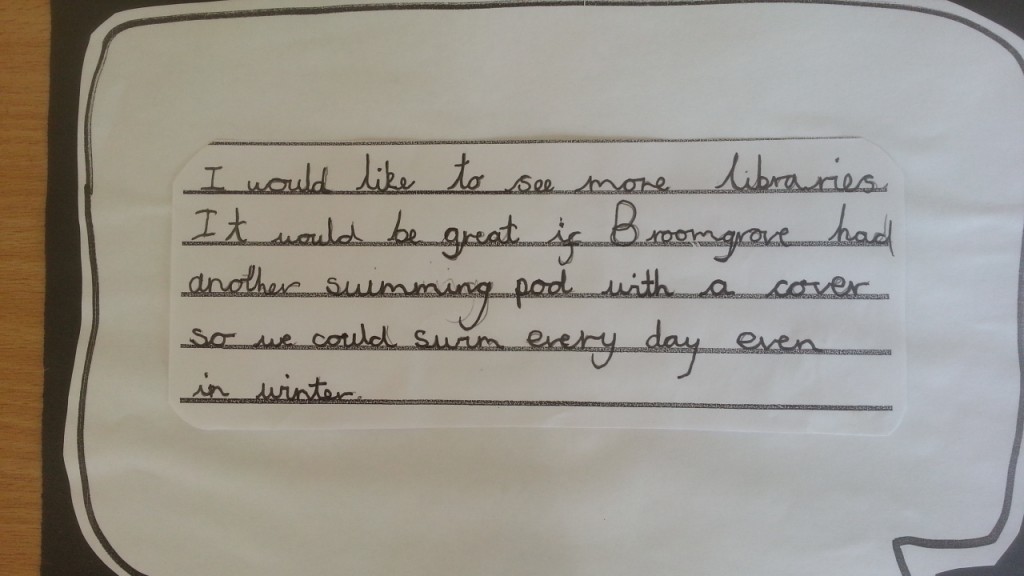 I would like to see more libraries.
It would be great if Broomgrove had
another swimming pool with a cover
so we could swim every day even
in winter.